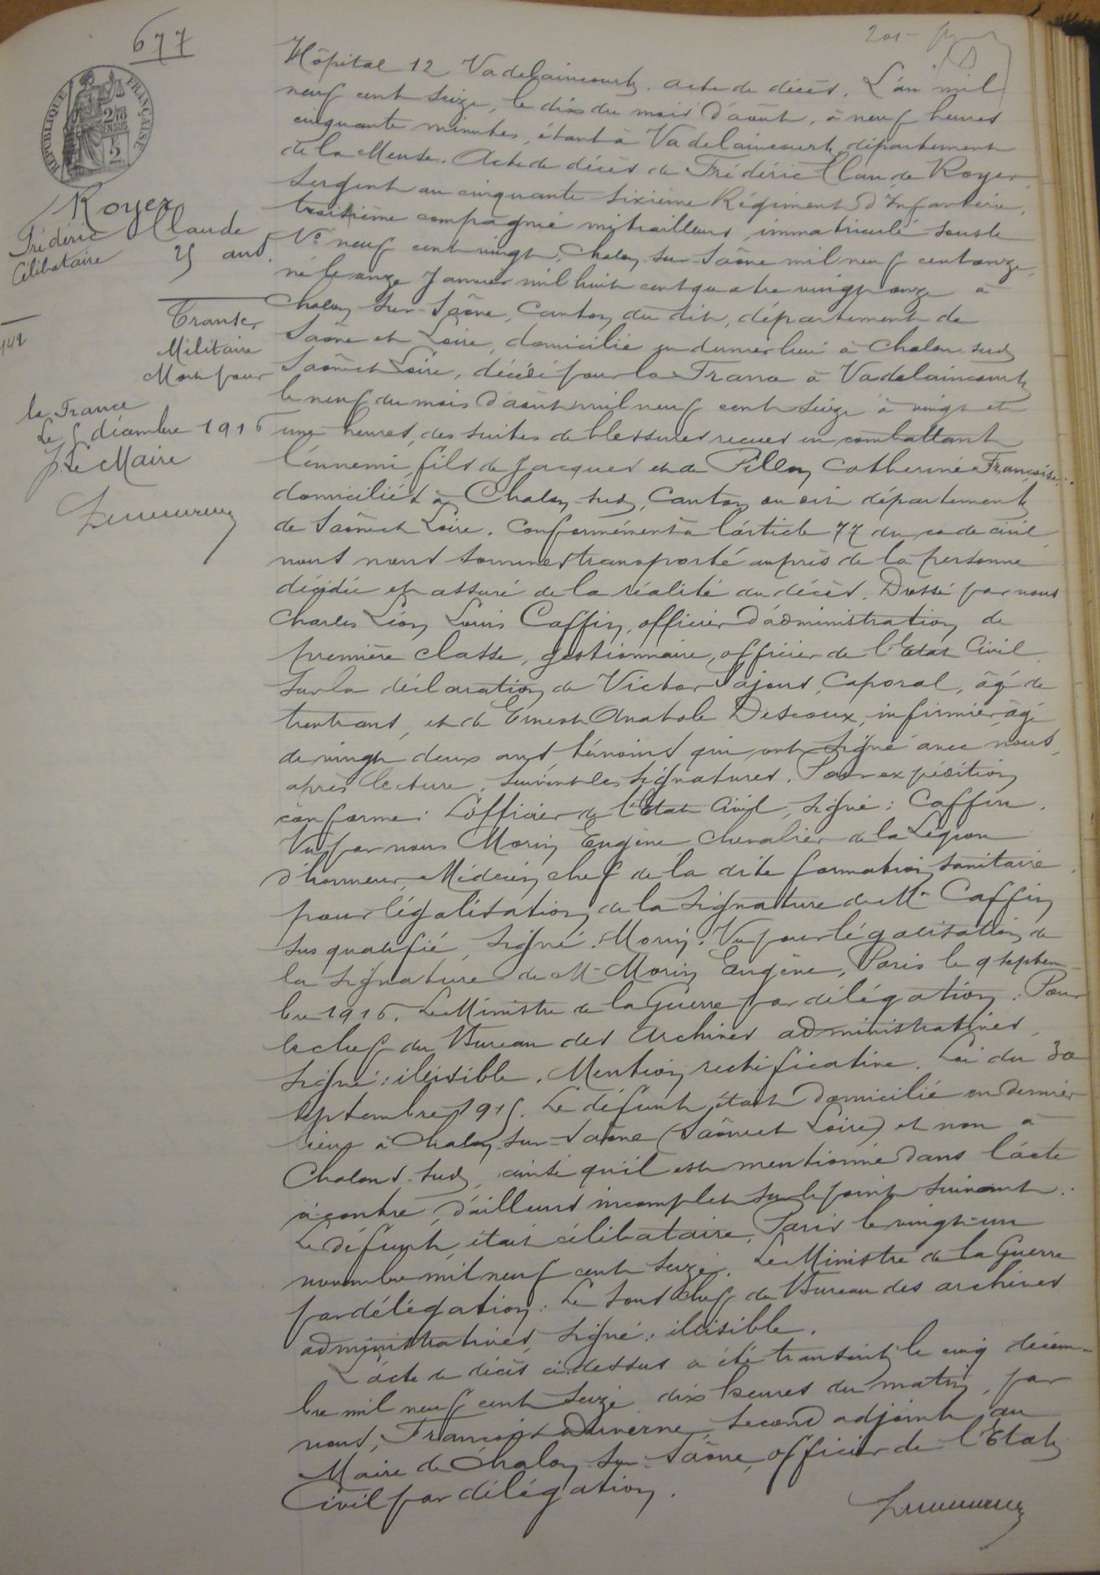 677
RÉPUBLIQUE FRANÇAISE
Royer
Frédéric Claude
Célibataire 25 ans
Transc.
Militaire
Mort pour
la France
Le 5 décembre 1916
Le Maire
Hôpital 12 Vadelaincourt. acte de décès. L'an mil
neuf cent seize, le dix du mois d'août, à neuf heures
cinquante minutes, étant à Vadelaincourt, département
de la Meuse. Acte de décès de Frédéric Claude Royer
Sergent au cinquante sixième Régiment d'Infanterie,
troisième compagnie mitrailleurs, immatriculé sous le
No neuf cent vingt, Chalon sur Saône mil neuf cent onze,
né le onze Janvier mil huit cent quatre vingt onze à
Chalon sur Saône, Canton du dit, département de
Saône et Loire, domicilié en dernier lieu à Chalon sud
Saône et Loire, décédé pour la France à Vadelaincourt
le neuf du mois d'août mil neuf cent seize à vingt et
une heures, des suites de blessures recues en combattant
l'ennemi, fils de Jacques et de Pillon Catherine Françoise
domiciliés à Chalon sud, Canton du dit département
de Saône et Loire. Conformément à l'article 77 du code civil
nous nous sommes transporté auprès de la personne
décédée et assuré de la réalité du décès. Dressé par nous
Charles Léon Louis Caffin, officier d'administration de
première classe, gestionnaire, officier de l'Etat Civil
Sur la déclaration de Victor Sajous, Caporal, âgé de
trente ans, et de Ernest Anatole Descoux, infirmier, âgé
de vingt deux ans témoins qui ont signé avec nous,
après lecture, suivent les signatures. Pour expédition
conforme: L'officier de l'Etat Civil, signé: Caffin.
Vu par nous Morin Eugène Chevalier de la Légion
d'honneur, Médecin chef de la dite formation sanitaire
pour légalisation de la signature de Mr Caffin
sus qualifié, signé: Morin. Vu pour légalisation de
la signature de Mr Morin Eugène, Paris le 9 septem-
bre 1916. Le Ministre de la Guerre par délégation. Pour
le chef du Bureau des Archives administratives.
Signé: illisible. Mention rectificative. Loi du 30
septembre 1915. Le défunt était domicilié en dernier
lieu à Chalon-sur-Saône (Saône et Loire) et non à
Chalons-sud, ainsi qu'il est mentionné dans l'acte
ci-contre, d'ailleurs incomplet sur le point suivant:
Le défunt était célibataire. Paris le vingt-un
novembre mil neuf cent seize. Le Ministre de la Guerre
par délégation: Le Sous chef du Bureau des archives
administratives, signé: illisible.
L'acte de décès ci-dessus a été transcrit le cinq décem-
bre mil neuf cent seize dix heures du matin, par
nous, François Duverne, second adjoint au
Maire de Chalon sur Saône, officier de l'Etat
Civil par délégation.